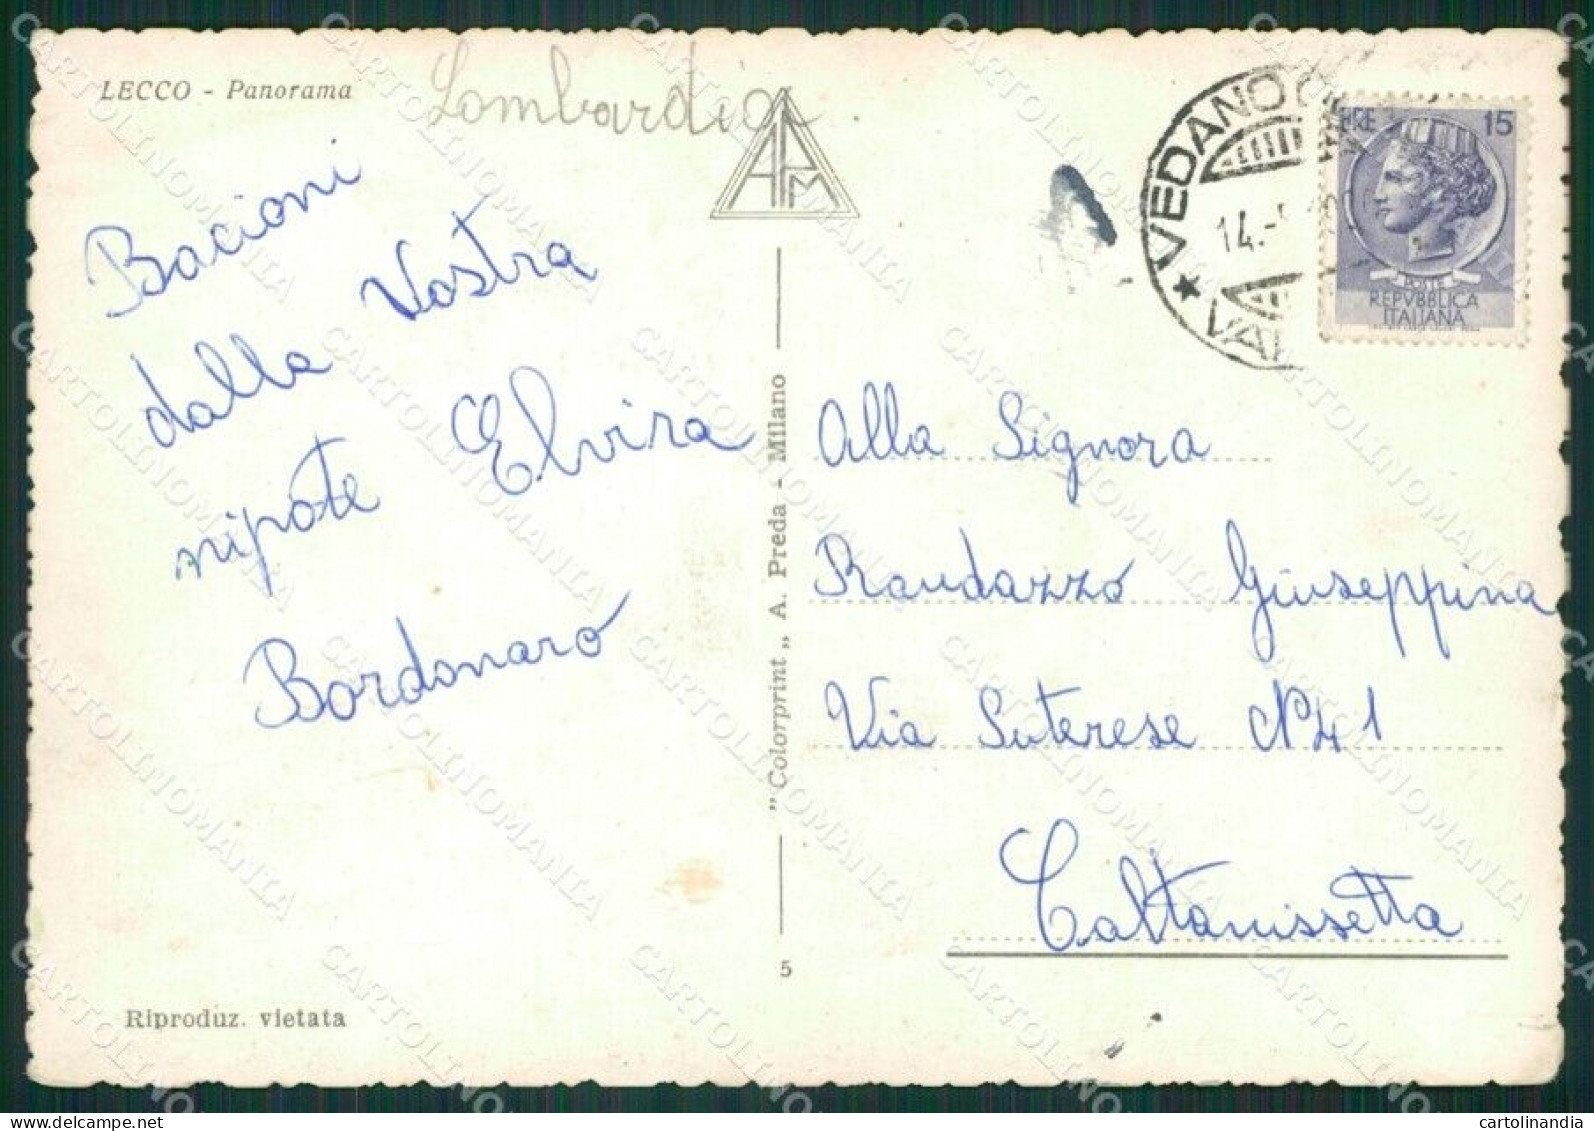 LECCO - Panorama
Lombardia
APM
Bacioni
dalla Vostra
nipote Elvira
Bordonaro
Riproduz. vietata
"Colorprint„ A. Preda - Milano
5
VEDANO
14.-
VA
LIRE 15
POSTE
REPVBBLICA
ITALIANA
Alla Signora
Randazzo Giuseppina
Via Suterese N 41
Caltanissetta
CARTOLINOMANIA
cartolinandia